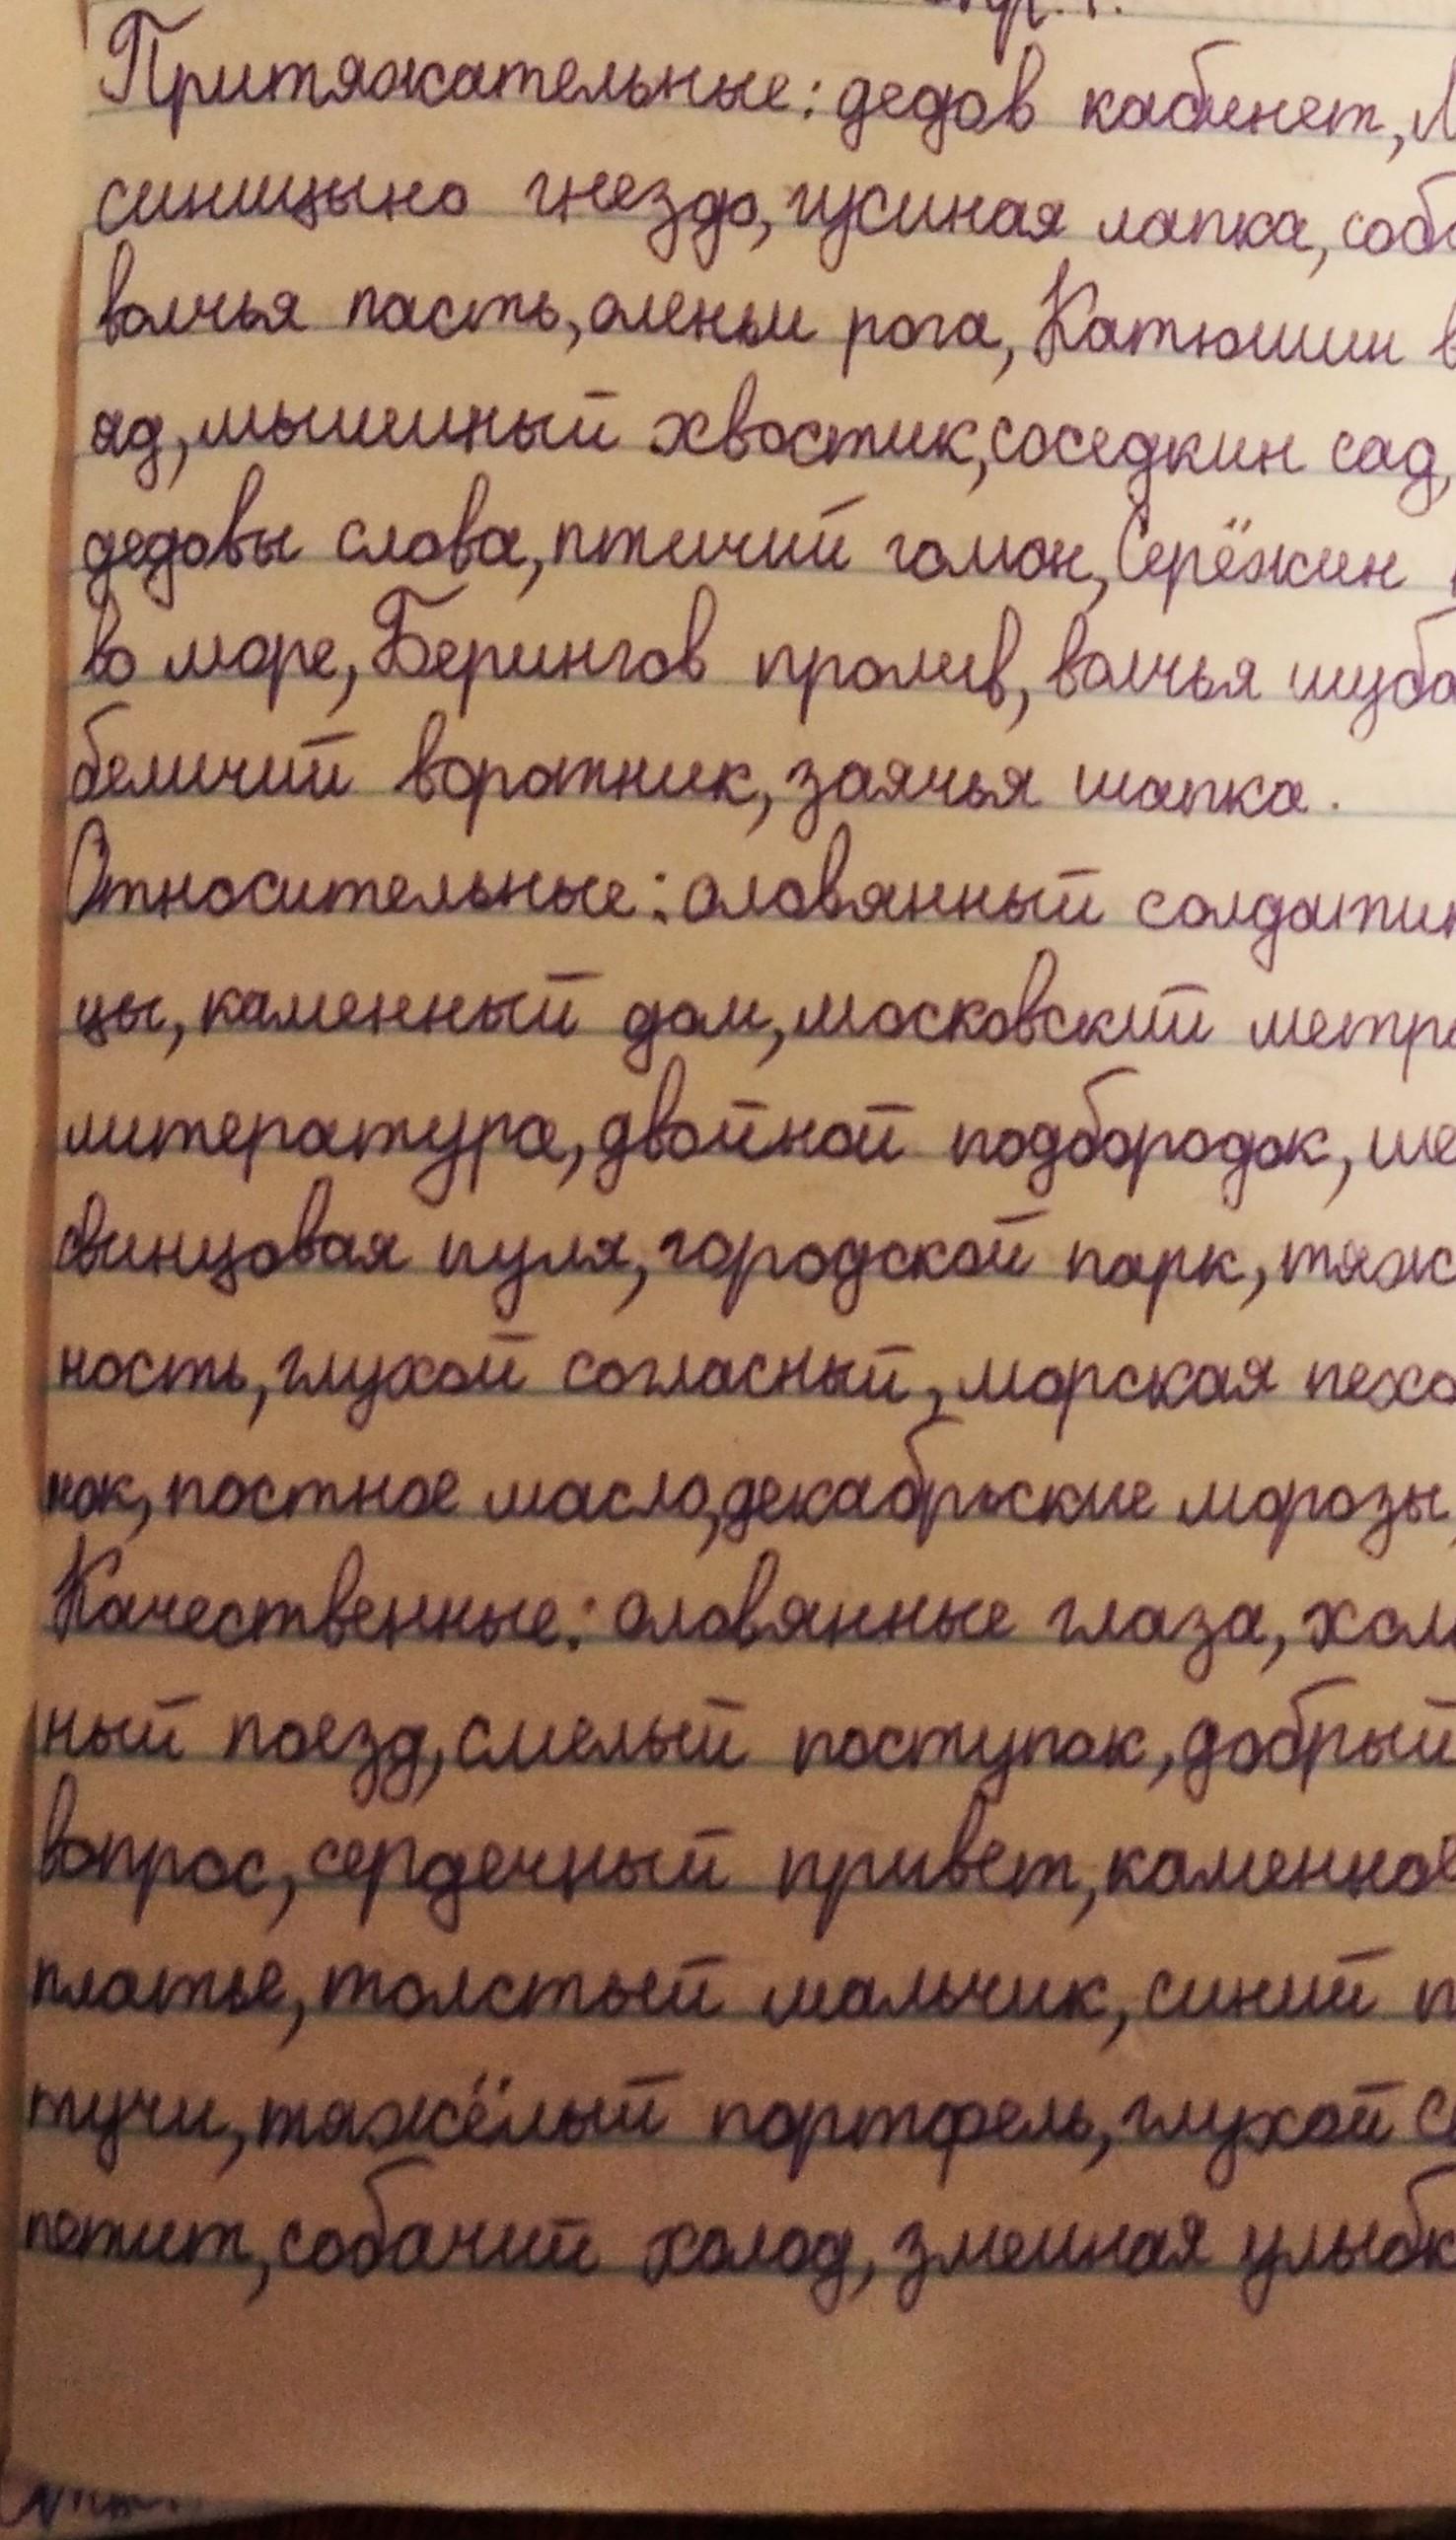 Притяжательные: дедов кабинет,
синицыно гнездо, гусиная лапка,
волчья пасть, оленьи рога, Катюшин
яд, мышиный хвостик, соседкин сад,
дедовы слова, птичий гомон, Серёжин
во море, Берингов пролив, волчья шуба
беличий воротник, заячья шапка.
Относительные: оловянный
цы, каменный дом, московский
литература, двойной подбородок,
свинцовая пуля, городской парк,
ность, глухой согласный, морская
нок, постное масло, декабрьские морозы,
Качественные: оловянные глаза,
ный поезд, смелый поступок, добрый
вопрос, сердечный привет, каменное
платье, толстый мальчик, синий
тучи, тяжёлый портфель, глухой
петит, собачий холод, змеиная